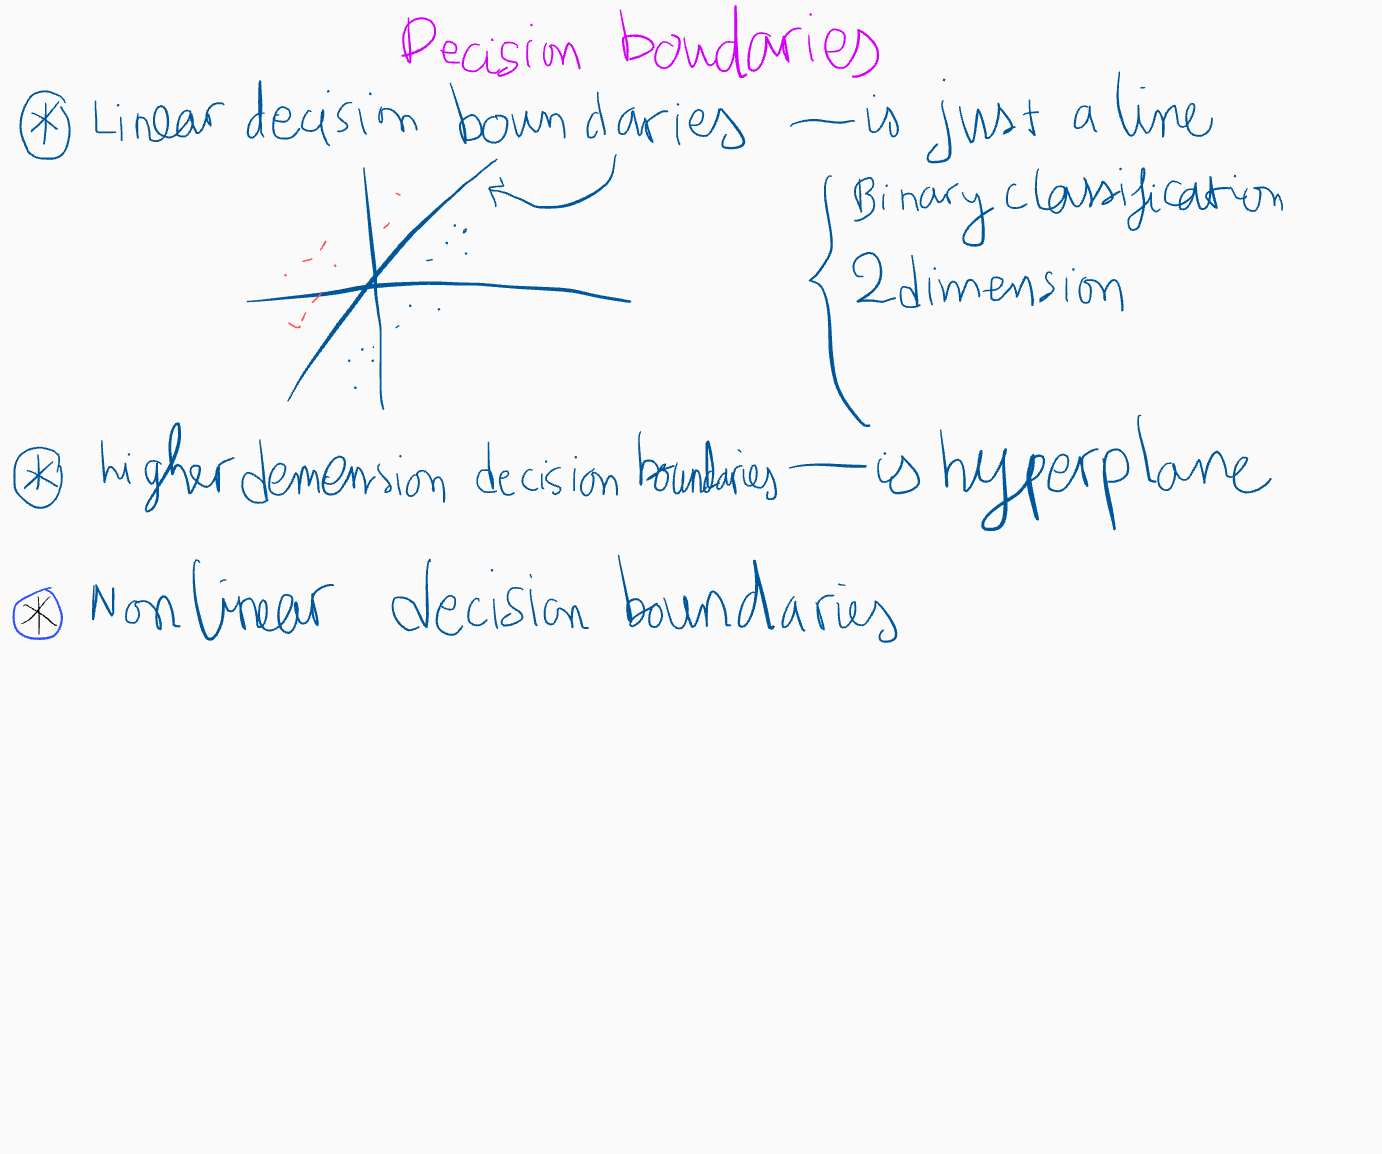 Decision boudaries
* Linear decisim boundaries — is just a line
Binary classification
2 dimension
* higher demension decision boundaries — is hyperplane
* Non linear decision boundaries